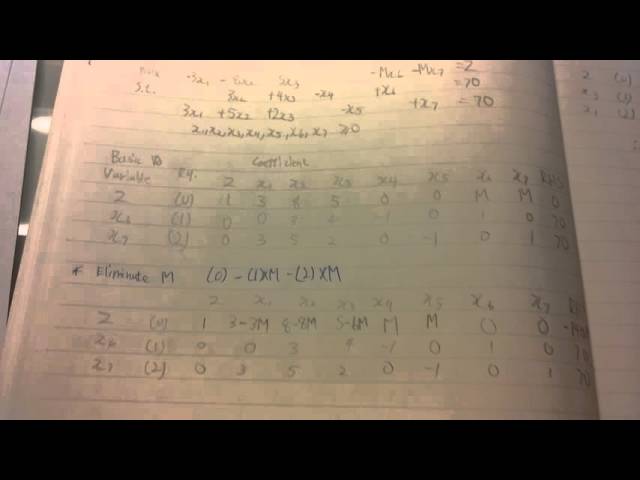 Max -3x1 - 8x2 - 5x3 -Mx6 -Mx7 = Z
S.t. 3x2 +4x3 -x4 +x6 = 70
3x1 +5x2 +2x3 -x5 +x7 = 70
x1,x2,x3,x4,x5,x6,x7 ≥0
Z (0)
x3 (1)
x1 (2)
Basic Coefficient
Variable Eq. Z x1 x2 x3 x4 x5 x6 x7 RHS
Z (0) 1 3 8 5 0 0 M M 0
x6 (1) 0 0 3 4 -1 0 1 0 70
x7 (2) 0 3 5 2 0 -1 0 1 70
* Eliminate M (0) - (1)xM - (2)xM
Z x1 x2 x3 x4 x5 x6 x7
Z (0) 1 3-3M 8-8M 5-6M M M 0 0
x6 (1) 0 0 3 4 -1 0 1 0 70
x7 (2) 0 3 5 2 0 -1 0 1 70